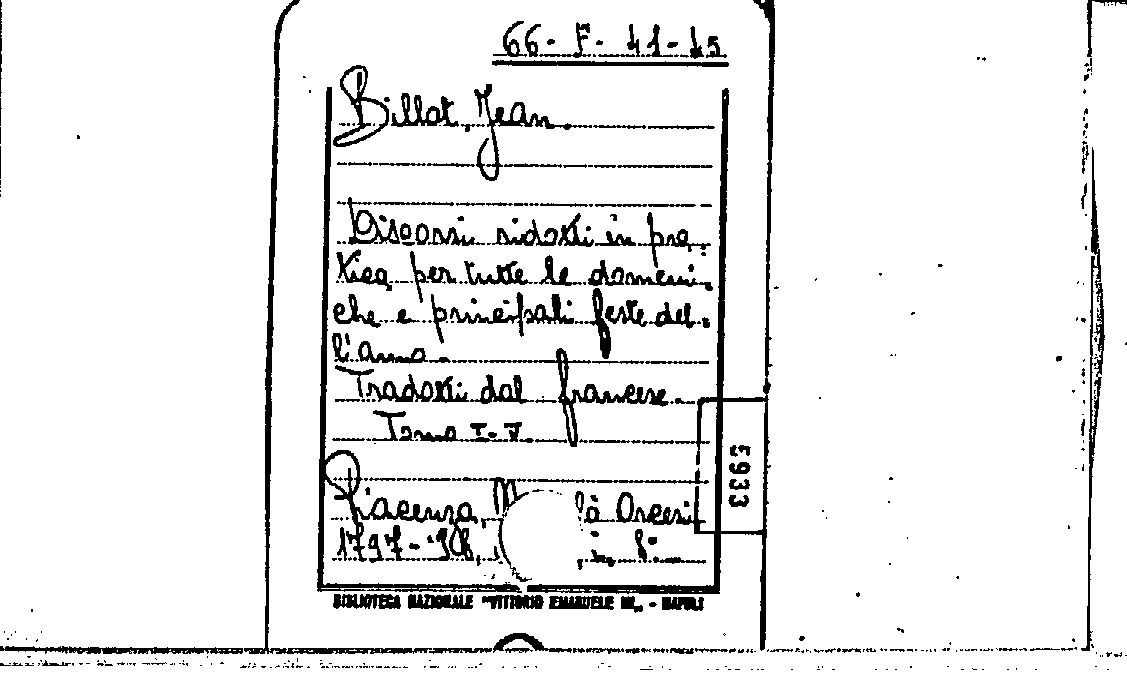 66-F-41-45
Billot, Jean.
Discorsi ridotti in pra-
tica per tutte le domeni-
che e principali feste del-
l'anno.
Tradotti dal francese.
Tomo I-V.
Piacenza, Orcesi
1797-98,
BIBLIOTECA NAZIONALE "VITTORIO EMANUELE III" - NAPOLI
5933